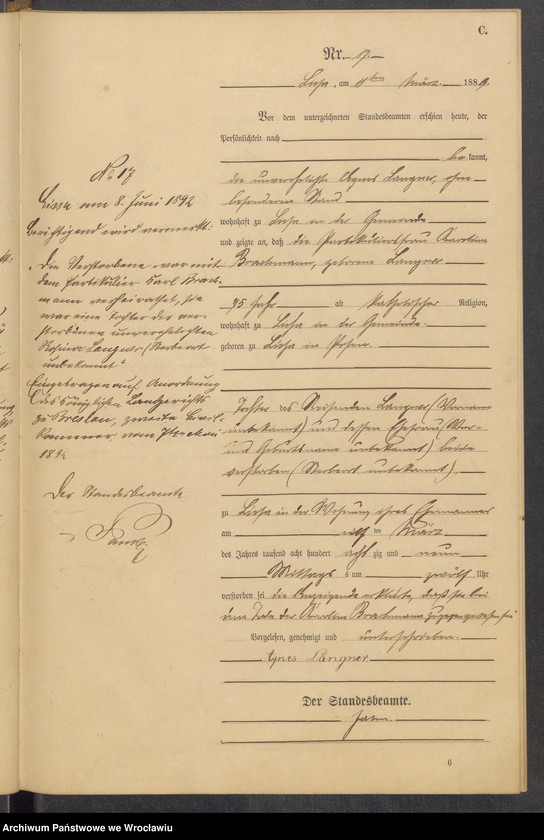 C.
Nr. 17.
Lissa, am 11ten März 1889.
Vor dem unterzeichneten Standesbeamten erschien heute, der
Persönlichkeit nach
bekannt,
die unverehelichte Agnes Langner, ohne
besonderen Stand
wohnhaft zu Lissa in der Gemeinde
und zeigte an, daß die Partikuliersfrau Karoline
Brackmann, geborene Langner
75 Jahr alt katholischer Religion,
wohnhaft zu Lissa in der Gemeinde
geboren zu Lissa in Posen.
Tochter des Langner (Vorname
unbekannt) und dessen Ehefrau (Vor-
und Geburtsname unbekannt) beide
verstorben (Sterbeort unbekannt).
zu Lissa in der Wohnung ihres Ehemannes
am elf im März
des Jahres tausend acht hundert acht zig und neun
Mittags um zwölf Uhr
verstorben sei die Anzeigende erklärte, daß sie bei
dem Tode der Karoline Brackmann zugegen gewesen sei
Vorgelesen, genehmigt und unterschrieben.
Agnes Langner
Der Standesbeamte.
6
No 17
Lissa am 8. Juni 1892
Berichtigend wird vermerkt:
"Die Verstorbene war mit
dem Partikulier Carl Brack-
mann verheirathet, sie
war eine Tochter der ver-
storbenen unverehelichten
Rosina Langner (Sterbeort
unbekannt"
Eingetragen auf Anordnung
des Königlichen Landgerichts
zu Breslau, zweite Civil-
kammer, vom
189
Der Standesbeamte
Archiwum Państwowe we Wrocławiu